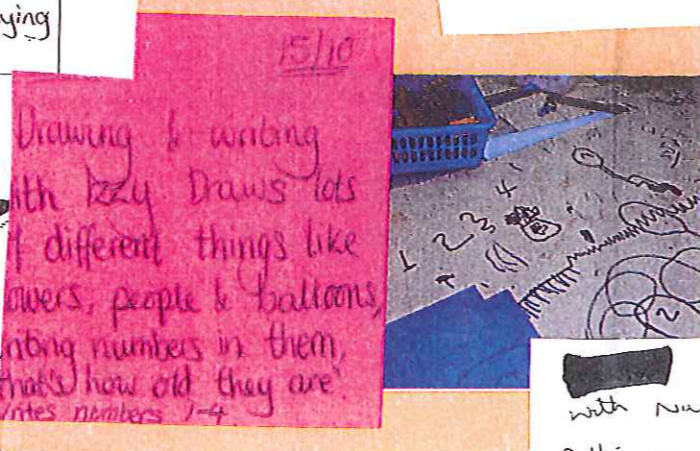 ying
15/10
Drawing & writing
ith Izzy Draws lots
f different things like
owers, people & balloons,
riting numbers in them,
that's how old they are"
writes numbers 1-4
1 2 3 4
2
with Nu